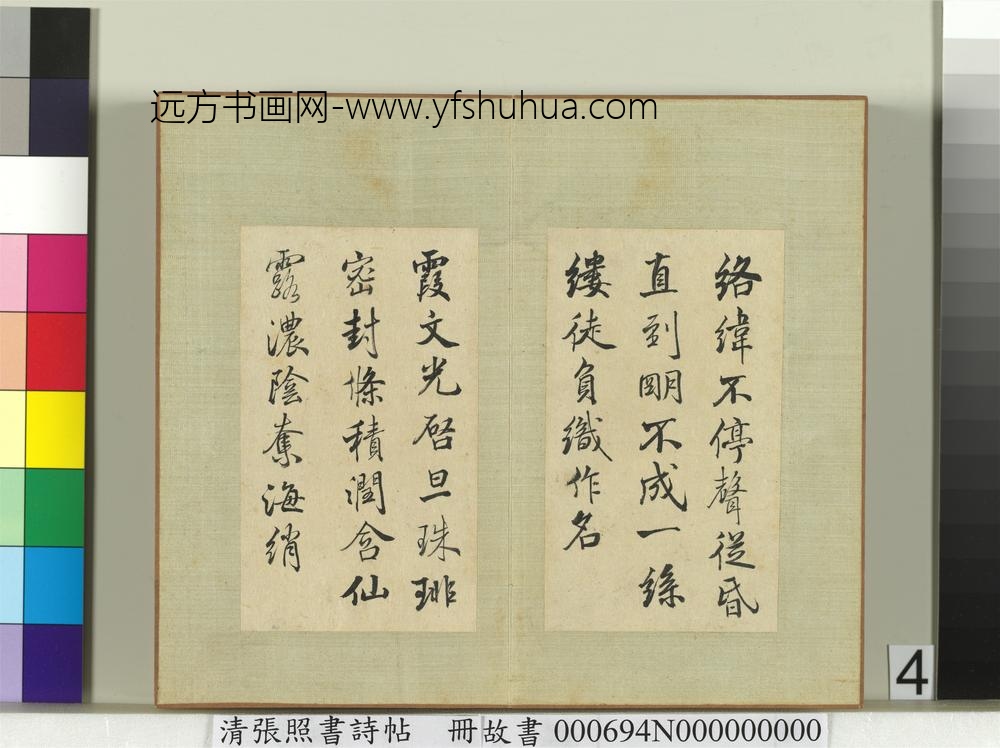 远方书画网-www.yfshuhua.com
絡緯不停聲從昏
直到明不成一絲
縷徒負織作名
霞文光啓旦珠琲
密封條積潤含仙
露濃陰奪海綃
4
清張照書詩帖 冊故書 000694N000000000